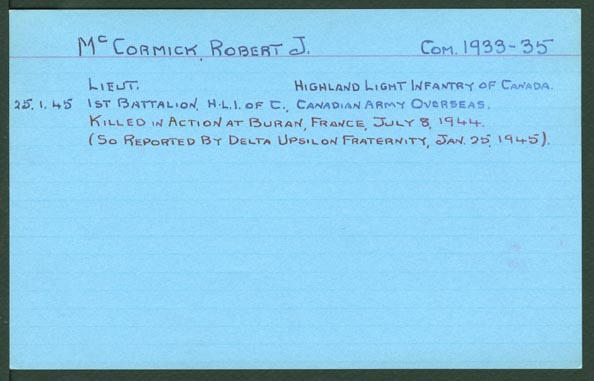 McCORMICK, ROBERT J. COM. 1933-35
LIEUT. HIGHLAND LIGHT INFANTRY OF CANADA.
25.1.45 1ST BATTALION, H.L.I. OF C., CANADIAN ARMY OVERSEAS.
KILLED IN ACTION AT BURAN, FRANCE, JULY 8, 1944.
(SO REPORTED BY DELTA UPSILON FRATERNITY, JAN. 25, 1945).